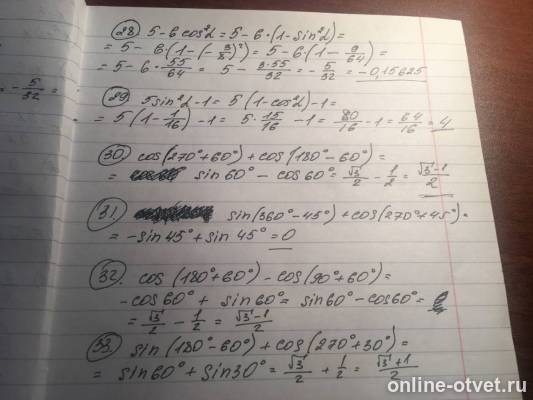 28) 5-6cos²α = 5-6·(1-sin²α)=
= 5- 6(1-(-3/8)²) = 5-6·(1- 9/64) =
= 5-6·55/64 = 5 - 3·55/32 = - 5/32 = -0,15625
= - 5/32 =
29) 5sin²α-1 = 5(1-cos²α)-1 =
= 5(1- 1/16) -1 = 5· 15/16 -1 = 80/16 -1 = 64/16 = 4
30) cos(270°+60°)+cos(180°-60°) =
= sin60°- cos60° = √3/2 - 1/2 = √3-1/2
31) sin(360°-45°)+cos(270°+45°)=
= -sin45°+sin 45° = 0
32) cos(180°+60°)-cos(90°+60°)=
-cos60°+ sin60° = sin60°-cos60° =
= √3/2 - 1/2 = √3-1/2
33) sin(180°-60°) + cos(270°+30°)=
= sin60°+sin30° = √3/2 + 1/2 = √3+1/2
online-otvet.ru